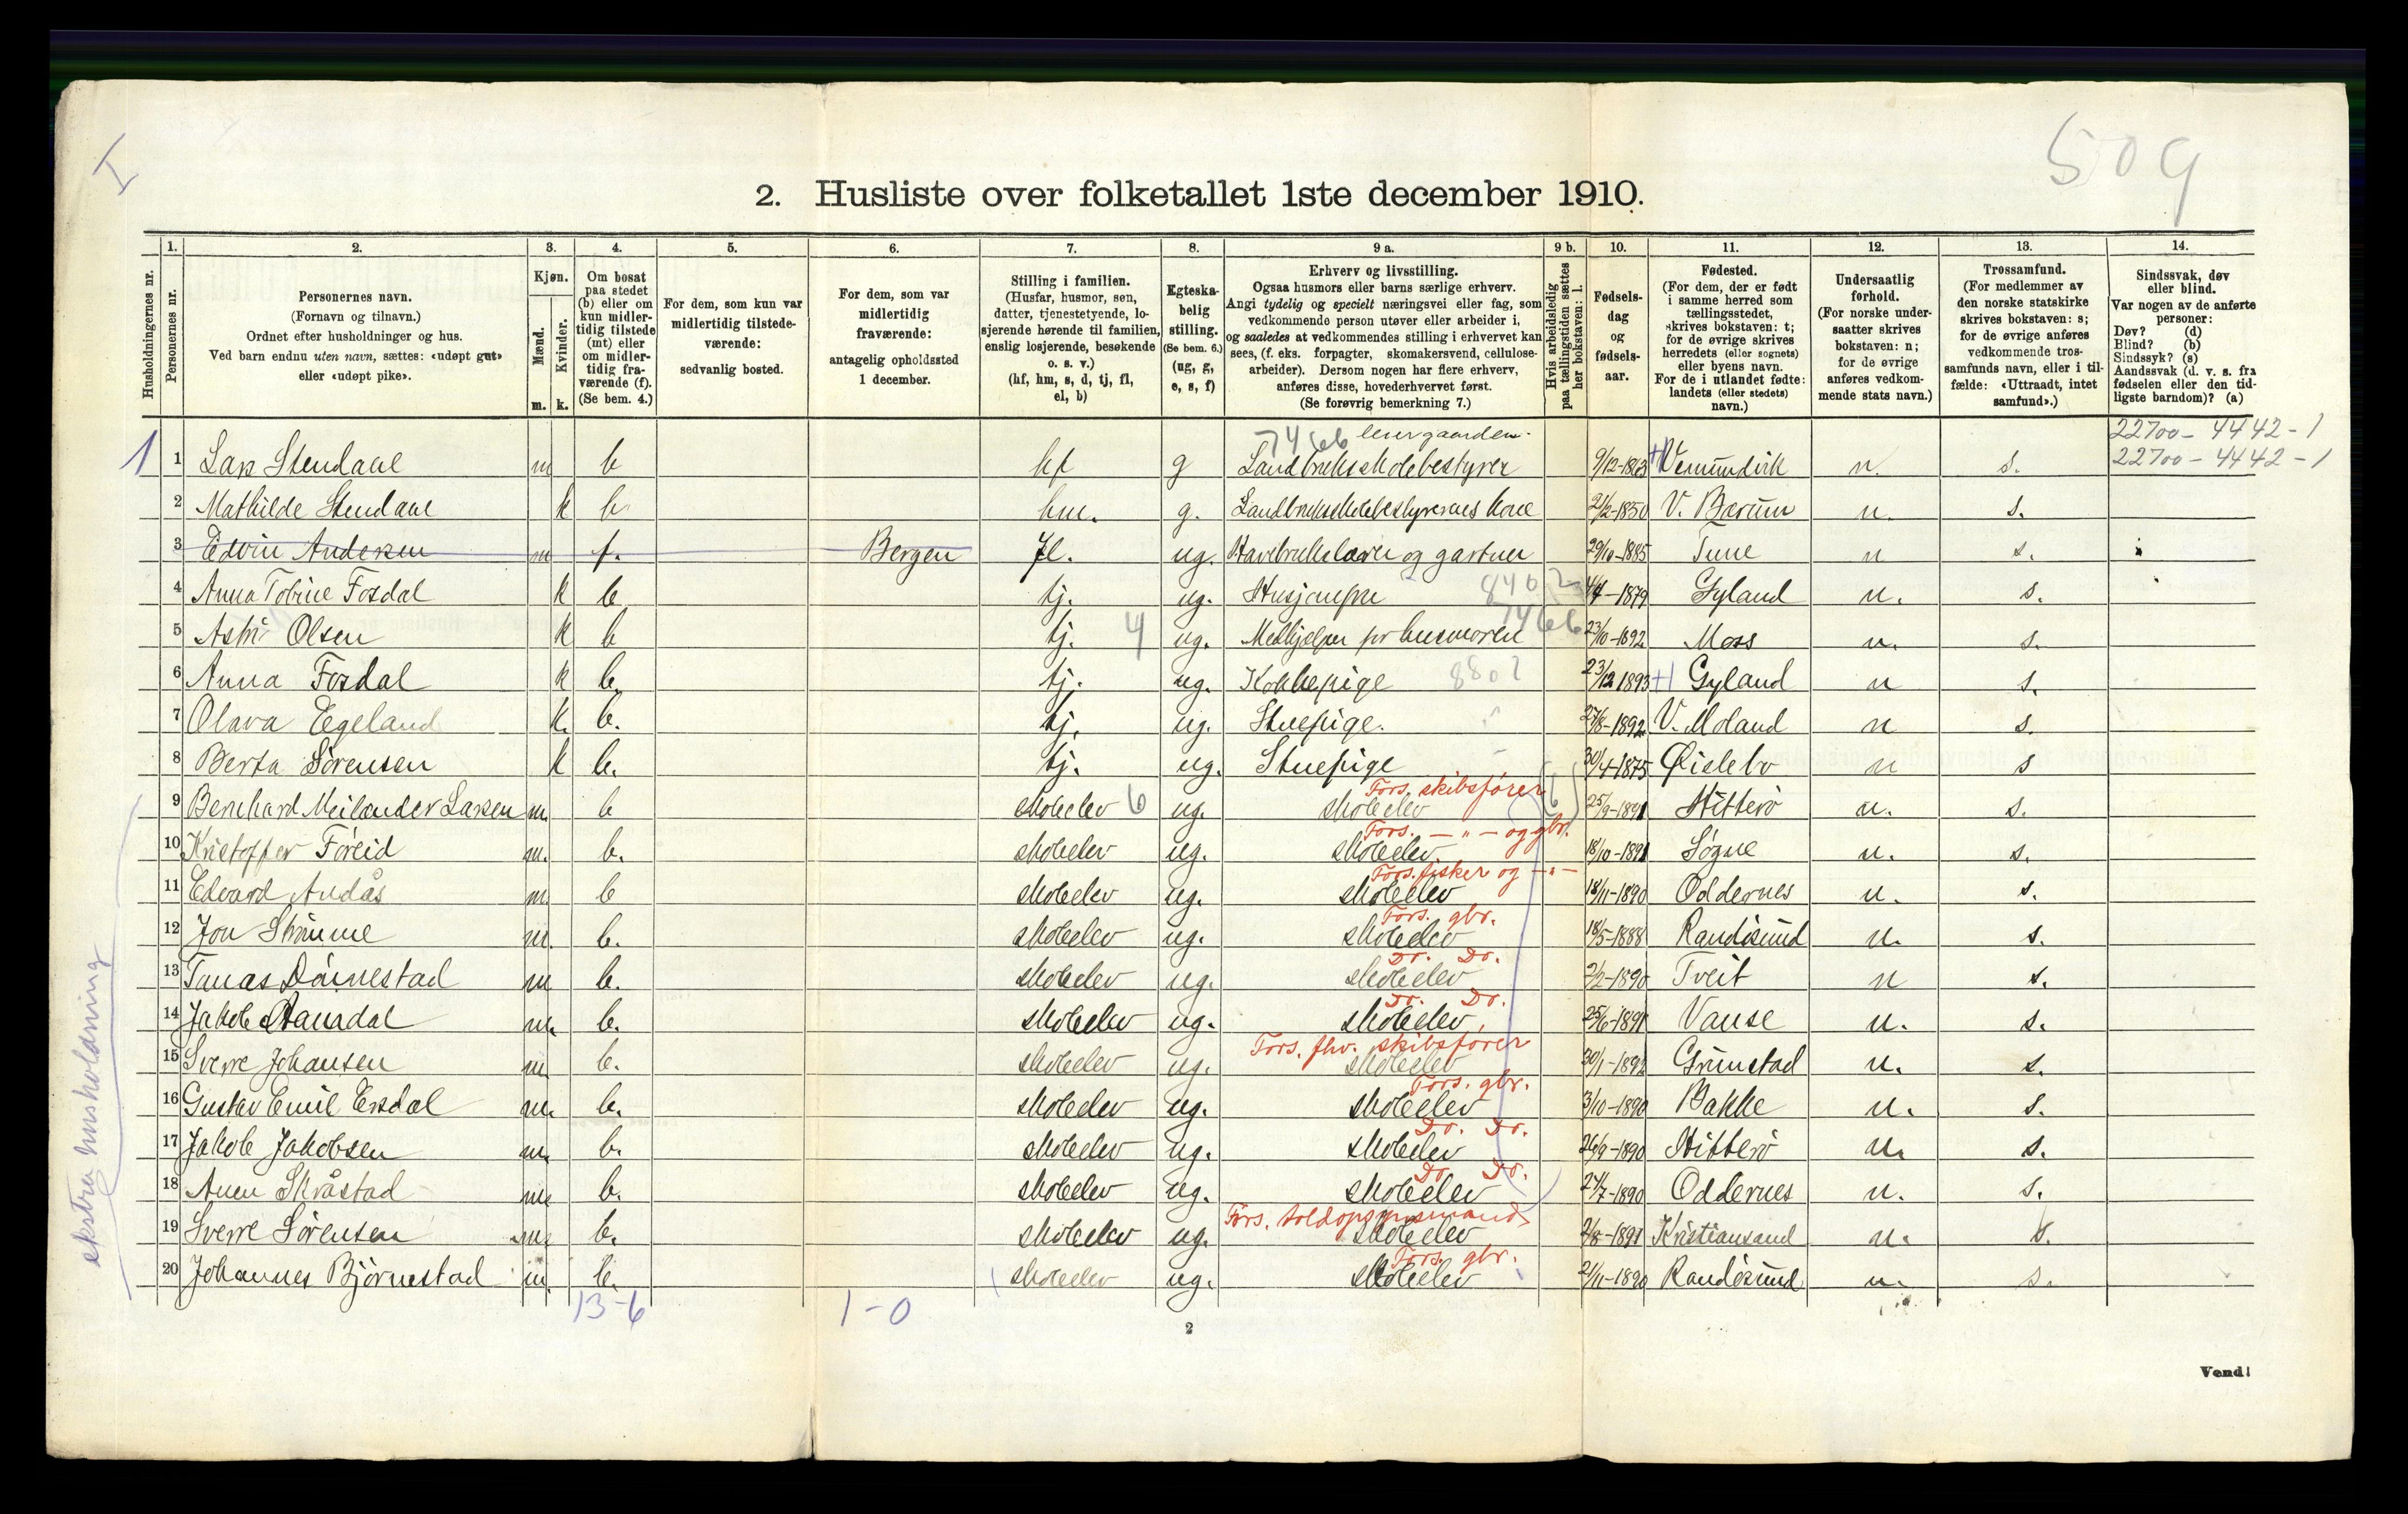 I
509
2. Husliste over folketallet 1ste december 1910.
Husholdningernes nr.
1.
Personernes nr.
2.
Personernes navn.
(Fornavn og tilnavn.)
Ordnet efter husholdninger og hus.
Ved barn endnu uten navn, sættes: «udøpt gut»
eller «udøpt pike».
3.
Kjøn.
Mænd.
Kvinder.
m. k.
4.
Om bosat
paa stedet
(b) eller om
kun midler-
tidig tilstede
(mt) eller
om midler-
tidig fra-
værende (f).
(Se bem. 4.)
5.
For dem, som kun var
midlertidig tilstede-
værende:
sedvanlig bosted.
6.
For dem, som var
midlertidig
fraværende:
antagelig opholdssted
1 december.
7.
Stilling i familien.
(Husfar, husmor, søn,
datter, tjenestetyende, lo-
sjerende hørende til familien,
enslig losjerende, besøkende
o. s. v.)
(hf, hm, s, d, tj, fl,
el, b)
8.
Egteska-
belig
stilling.
(Se bem. 6.)
(ug, g,
e, s, f)
9 a.
Erhverv og livsstilling.
Ogsaa husmors eller barns særlige erhverv.
Angi tydelig og specielt næringsvei eller fag, som
vedkommende person utøver eller arbeider i,
og saaledes at vedkommendes stilling i erhvervet kan
sees, (f. eks. forpagter, skomakersvend, cellulose-
arbeider). Dersom nogen har flere erhverv,
anføres disse, hovederhvervet først.
(Se forøvrig bemerkning 7.)
9 b.
Hvis arbeidsledig
paa tællingstiden sættes
her bokstaven: l.
10.
Fødsels-
dag
og
fødsels-
aar.
11.
Fødested.
(For dem, der er født
i samme herred som
tællingsstedet,
skrives bokstaven: t;
for de øvrige skrives
herredets (eller sognets)
eller byens navn.
For de i utlandet fødte:
landets (eller stedets)
navn.)
12.
Undersaatlig
forhold.
(For norske under-
saatter skrives
bokstaven: n;
for de øvrige
anføres vedkom-
mende stats navn.)
13.
Trossamfund.
(For medlemmer av
den norske statskirke
skrives bokstaven: s;
for de øvrige anføres
vedkommende tros-
samfunds navn, eller i til-
fælde: «Uttraadt, intet
samfund».)
14.
Sindssvak, døv
eller blind.
Var nogen av de anførte
personer:
Døv? (d)
Blind? (b)
Sindssyk? (s)
Aandssvak (d. v. s. fra
fødselen eller den tid-
ligste barndom)? (a)
7466
22700 - 4442 - 1
1 1 Lars Stendahl m b hf g Landbruksskolebestyrer 9/12-1863 n. s. 22700 - 4442 - 1
2 Mathilde Stendahl k b hm. g. Landbruksskolebestyrerens kone 21/2-1850 V. Bærum n. s.
3 Edvin Andersen m f. Bergen fl. ug. Havebrukslærer og gartner 29/10-1885 Tune n s.
4 Anna Tobine Fosdal k b tj. ug. Husjomfru 8402 1879 Gyland n. s.
5 Olsen k b tj. 4 ug. Medhjelper for husmoren 7466 23/10-1892 Moss n. s.
6 Anna Fosdal k b. tj. ug. Kokkepige 8802 23/12 1893 Gyland n s.
7 Olava Egeland k. b. tj. ug. Stuepige. 27/8-1892 V. Moland n s.
8 Berta Sørensen k b. tj. ug. Stuepige 30/4-1875 Øislebø n s
Fors. skibsfører
9 Bernhard Meilænder Larsen m. b skoleelev 6 ug. skoleelev 25/9-1891 Hitterø n. s.
Fors. — „ — og gbr.
10 Kristoffer Föreid m. b. skoleelev ug. skoleelev 18/10-1891 Søgne n. s.
Fors. fisker og — „ —
11 Edvard Andås m. b skoleelev ug. skoleelev 18/11-1890 Oddernes n. s.
Fors. gbr.
12 Jon Strømme m. b. skoleelev ug. skoleelev 18/5-1888 Randøsund n. s.
Do. Do.
13 Tanas Dönnestad m b. skoleelev ug. skoleelev 2/2-1890 Tveit n s.
Do. Do.
14 Jakob m. b. skoleelev ug. skoleelev 25/6-1891 Vanse n. s.
Fors. fhv. skibsfører
15 Sverre Johansen m b. skoleelev ug. skoleelev 30/1-1892 Grimstad n. s.
Fors. gbr.
16 Gustav Emil Ersdal m. b. skoleelev ug. skoleelev 3/10-1890 Bakke n. s.
Do. Do.
17 Jakob Jakobsen m. b. skoleelev ug. skoleelev 26/9-1890 Hitterø n. s.
Do. Do.
18 Anen Skråstad m. b. skoleelev ug. skoleelev 24/7-1890 Oddernes n. s.
Fors. toldopsynsmand
19 Sverre Sörensen m. b. skoleelev ug. skoleelev 2/8-1891 Kristiansand n. s.
Fors. gbr.
20 Johannes Björnestad m. b. skoleelev ug. skoleelev 21/11-1890 Randøsund n. s.
ekstra husholdning
13-6
1-0
2
Vend!